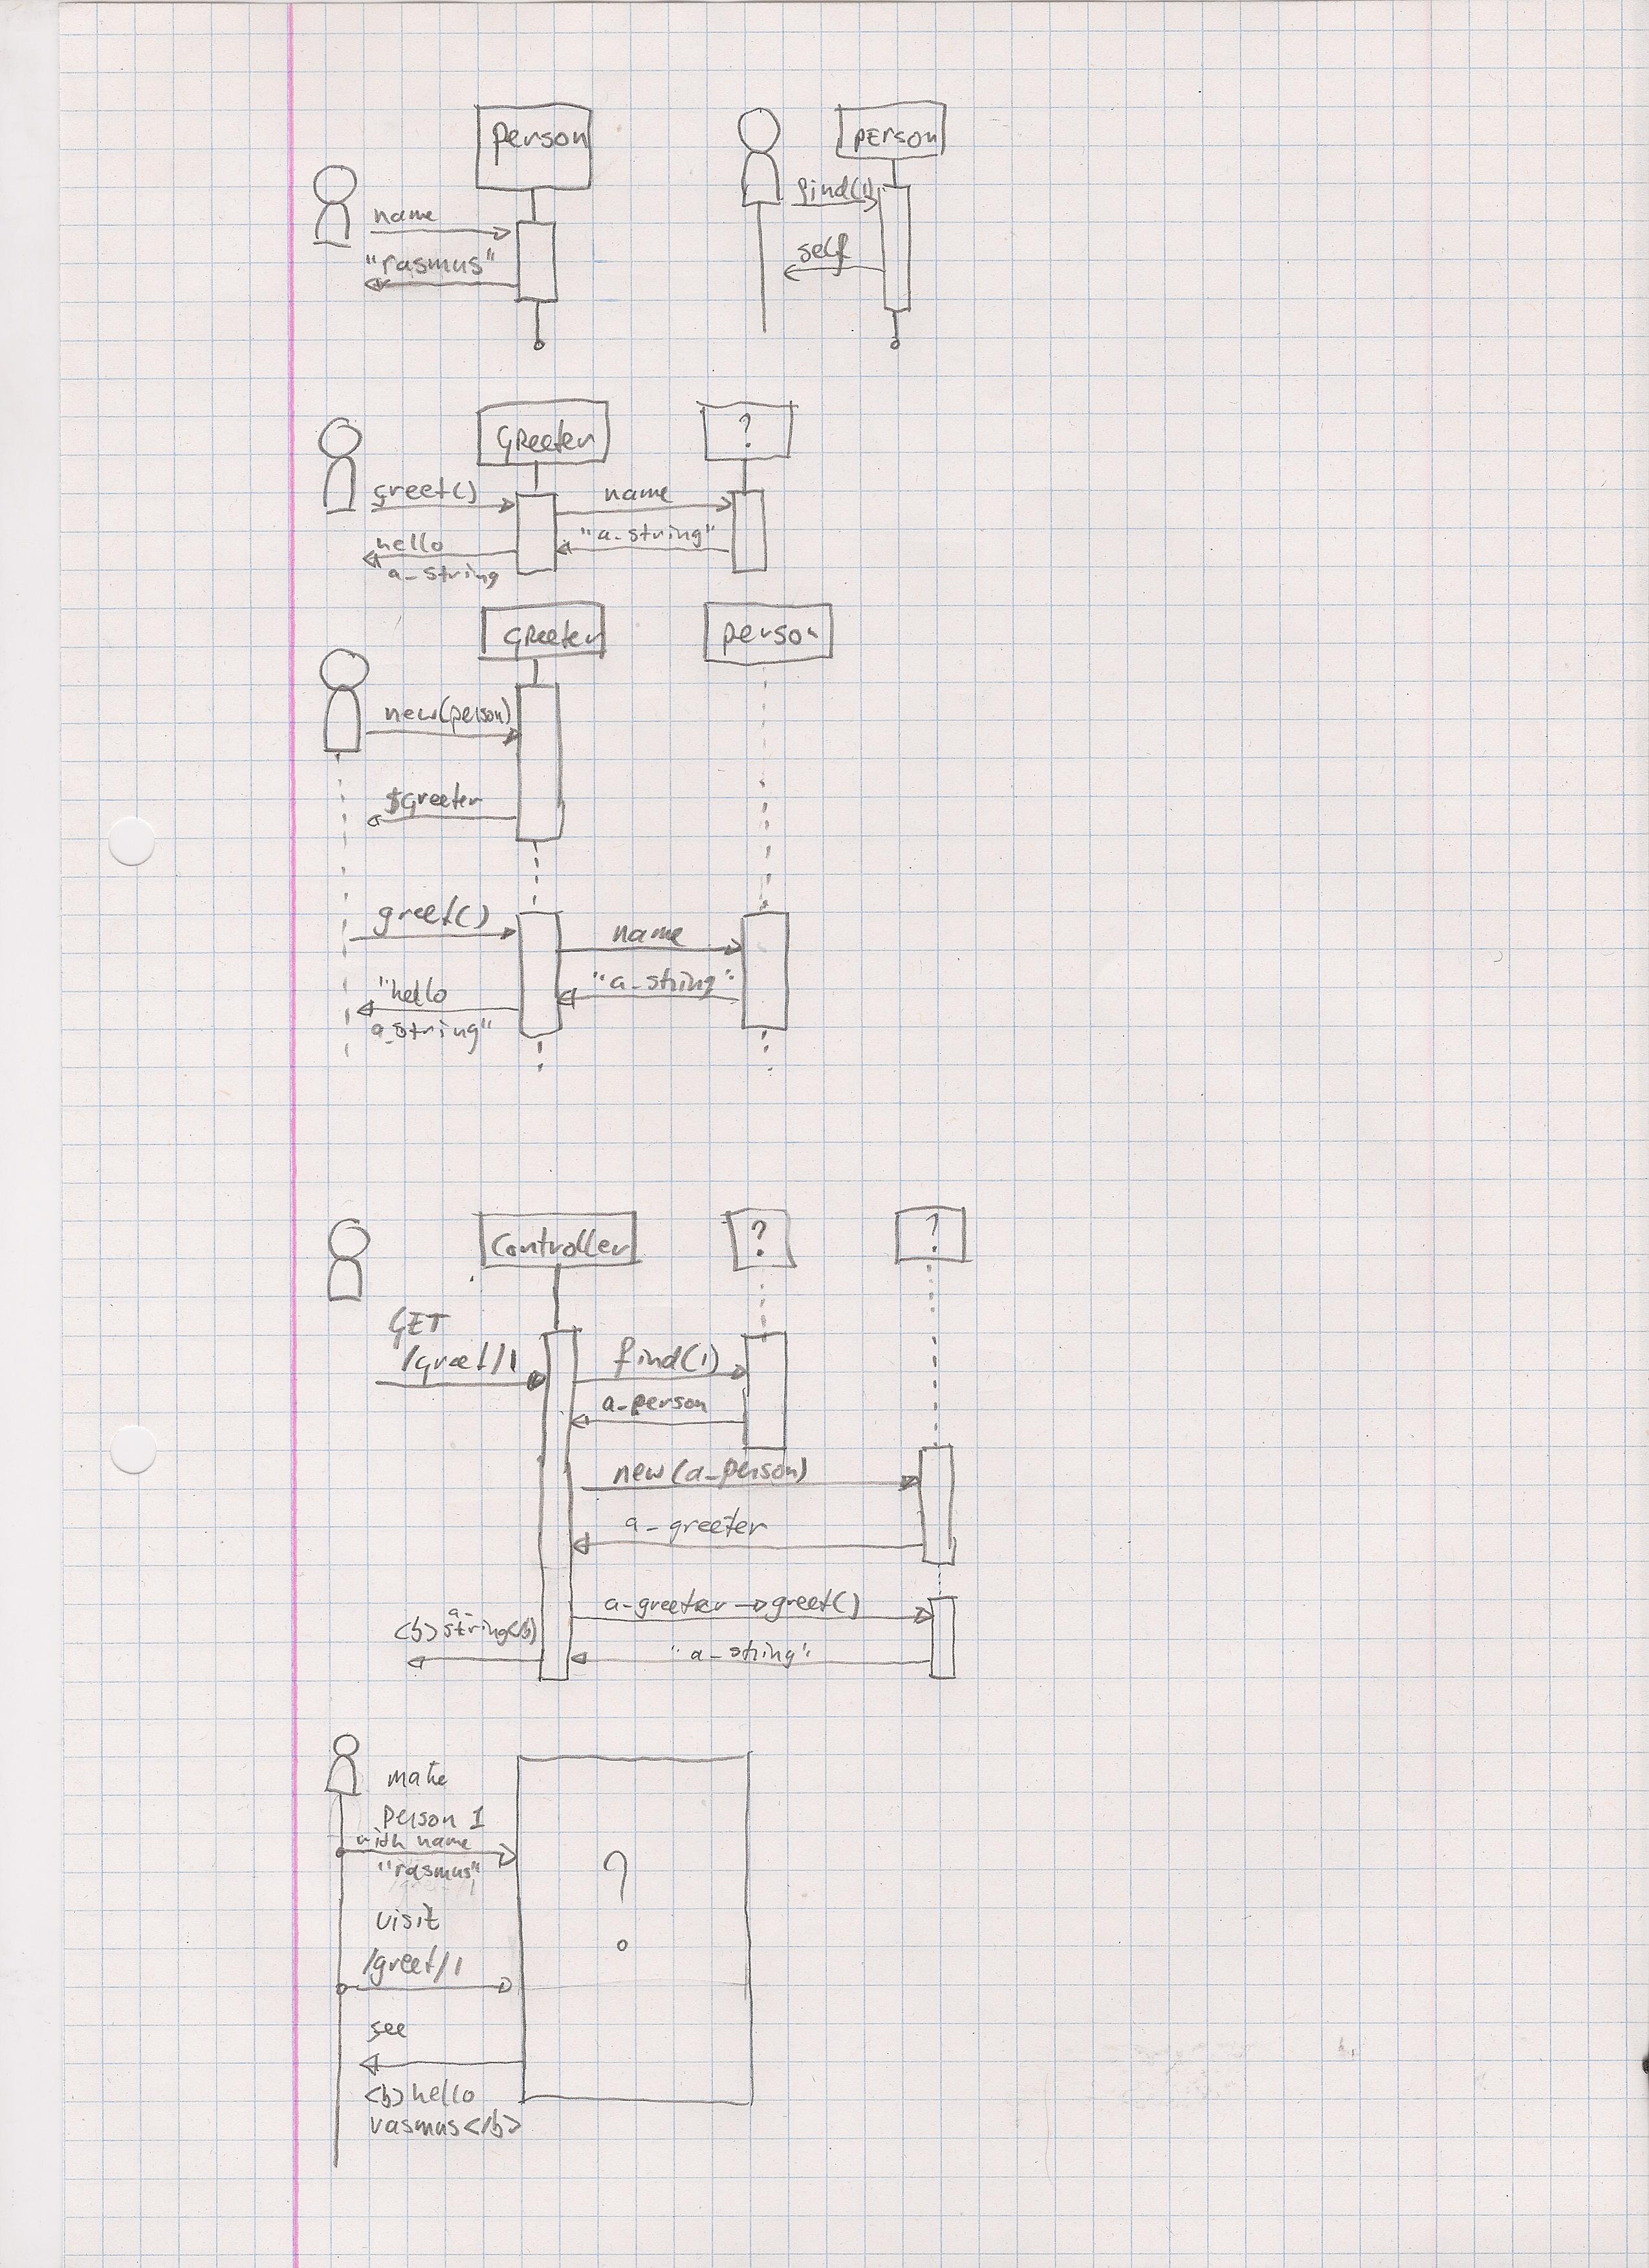 person
name
"rasmus"
person
find(1)
self
Greeter
?
greet()
name
"a_string"
hello
a_string
Greeter
person
new(person)
$greeter
greet()
name
"a_string"
"hello
a_string"
Controller
?
?
GET
/greet/1
find(1)
a_person
new(a_person)
a_greeter
a_greeter→greet()
"a_string"
a_
<b>string</b>
make
person 1
with name
"rasmus"
?
visit
/greet/1
see
<b>hello
rasmus</b>